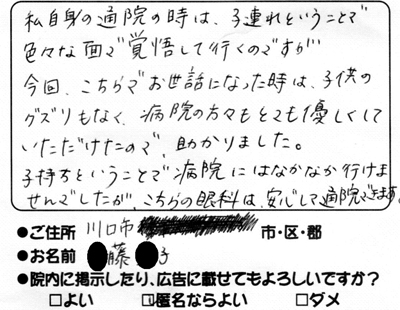 私自身の通院の時は、子連れということで
色々な面で覚悟して行くのですが
今回、こちらでお世話になった時は、子供の
グズリもなく、病院の方々もとても優しくして
いただけたので、助かりました。
子持ちということで病院にはなかなか行けま
せんでしたが、こちらの眼科は、安心して通院できます。
●ご住所 川口市 市・区・郡
●お名前 藤 子
●院内に掲示したり、広告に載せてもよろしいですか?
□よい □匿名ならよい □ダメ